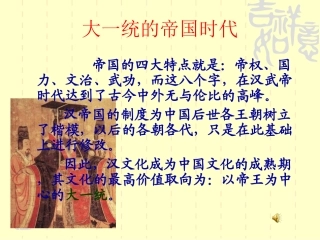 吉祥如意
大一统的帝国时代
帝国的四大特点就是：帝权、国
力、文治、武功，而这八个字，在汉武帝
时代达到了古今中外无与伦比的高峰。
汉帝国的制度为中国后世各王朝树立
了楷模，以后的各朝各代，只是在此基础
上进行修改。
因此，汉文化成为中国文化的成熟期
，其文化的最高价值取向为：以帝王为中
心的大一统。